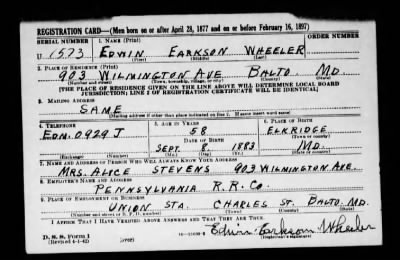 REGISTRATION CARD—(Men born on or after April 28, 1877 and on or before February 16, 1897)
SERIAL NUMBER 1. NAME (Print) ORDER NUMBER
U 1573 EDWIN EARKSON WHEELER
(First) (Middle) (Last)
2. PLACE OF RESIDENCE (Print)
903 WILMINGTON AVE BALTO. MD.
(Number and street) (Town, township, village, or city) (County) (State)
[THE PLACE OF RESIDENCE GIVEN ON THE LINE ABOVE WILL DETERMINE LOCAL BOARD
JURISDICTION; LINE 2 OF REGISTRATION CERTIFICATE WILL BE IDENTICAL]
3. MAILING ADDRESS
SAME
(Mailing address if other than place indicated on line 2. If same insert word same)
4. TELEPHONE 5. AGE IN YEARS 6. PLACE OF BIRTH
EDM. 0929 J 58 ELKRIDGE
DATE OF BIRTH (Town or county)
SEPT. 8. 1883 MD.
(Exchange) (Number) (Mo.) (Day) (Yr.) (State or country)
7. NAME AND ADDRESS OF PERSON WHO WILL ALWAYS KNOW YOUR ADDRESS
MRS. ALICE STEVENS 903 WILMINGTON AVE.
8. EMPLOYER'S NAME AND ADDRESS
PENNSYLVANIA R.R. CO.
9. PLACE OF EMPLOYMENT OR BUSINESS
UNION STA. CHARLES ST. BALTO. MD.
(Number and street or R. F. D. number) (Town) (County) (State)
I AFFIRM THAT I HAVE VERIFIED ABOVE ANSWERS AND THAT THEY ARE TRUE.
Edwin Earkson Wheeler
D. S. S. Form 1
(Revised 4-1-42) (over) (Registrant's signature)